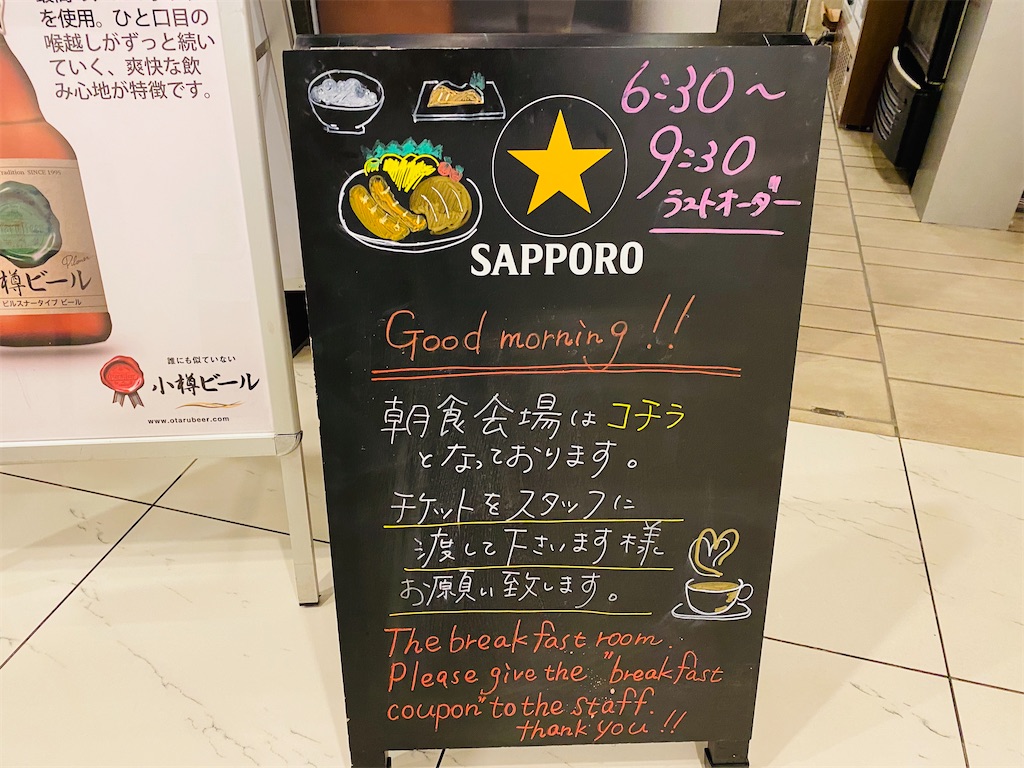 を使用。ひと口目の
喉越しがずっと続い
ていく、爽快な飲
み心地が特徴です。
Tradition SINCE 1995
樽ビール
ピルスナータイプ ビール
誰にも似ていない
小樽ビール
www.otarubeer.com
6:30～
9:30
ラストオーダー
SAPPORO
Good morning!!
朝食会場はコチラ
となっております。
チケットをスタッフに
渡して下さいます様
お願い致します。
The breakfast room.
Please give the "breakfast
coupon" to the staff.
thank you!!